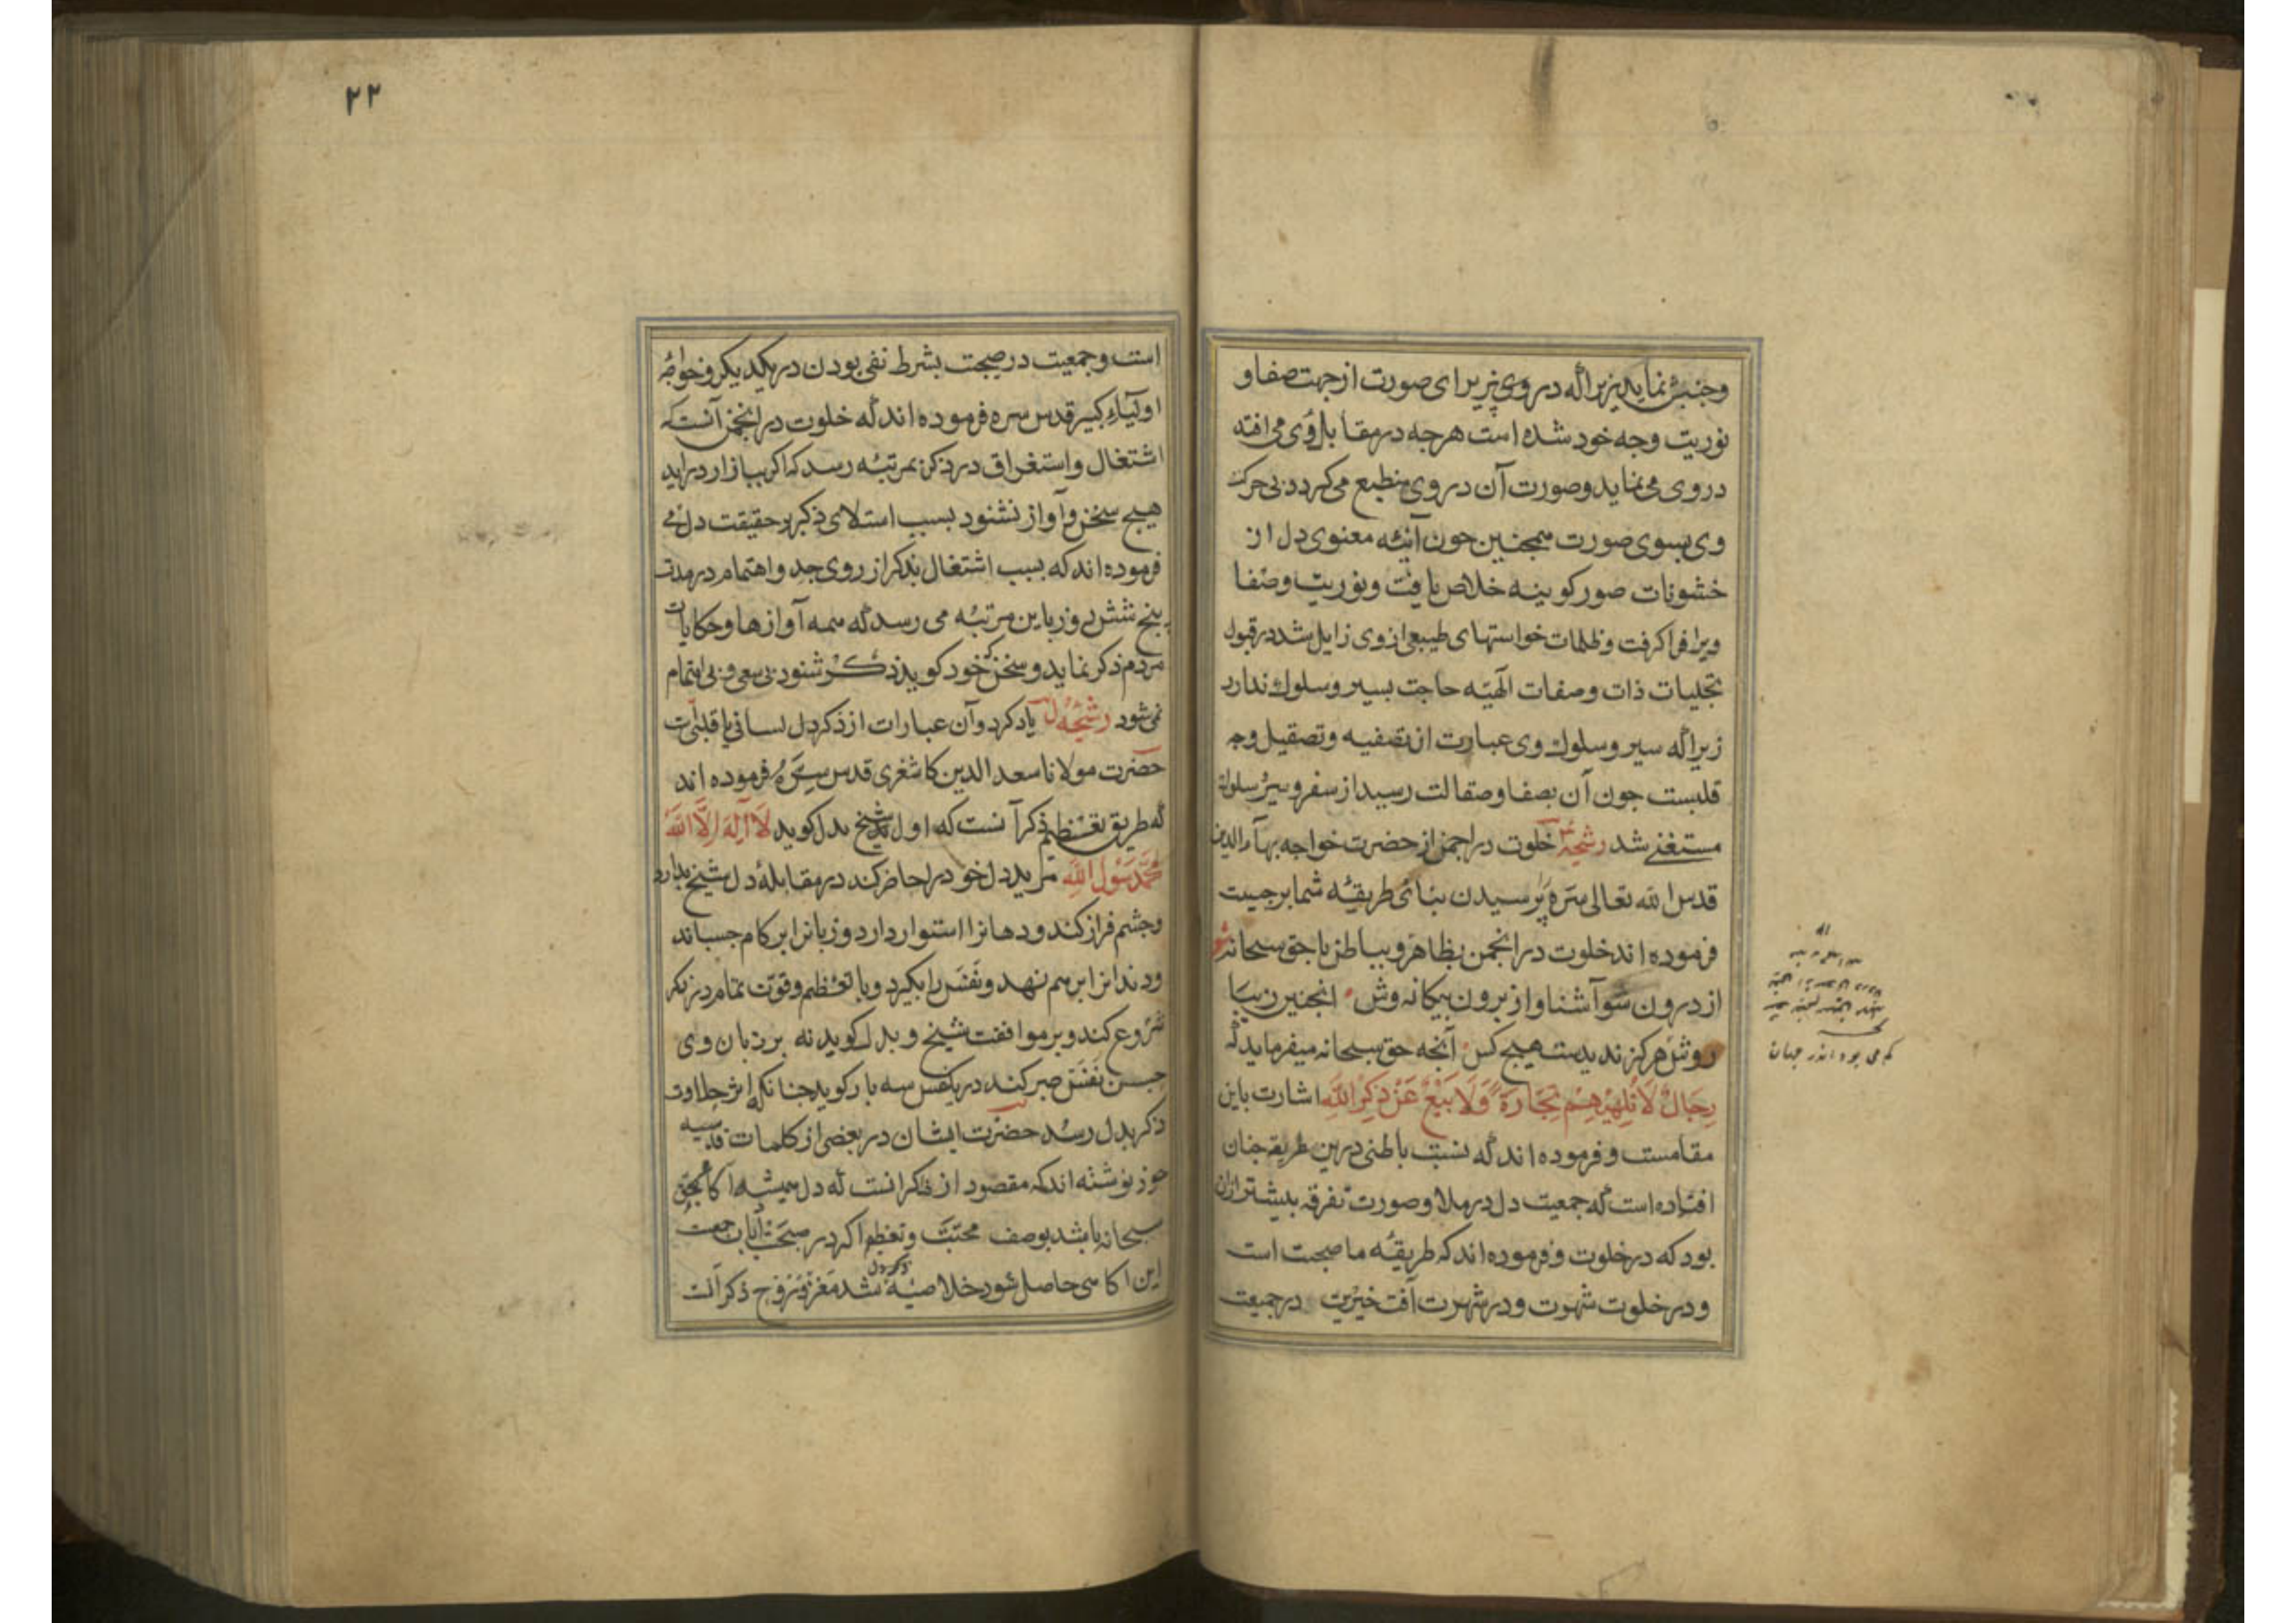 وجنبش نماید زیراکه در وی پذیرای صورت از جهت صفا و
نوریت وجه خود شده است هرجه در مقابل وی می افتد
در وی می نماید وصورت آن در وی منطبع می کردد بی حرکت
وی بسوی صورت همجنین جون آئنه معنوی دل از
خشونات صور کوینیه خلاص یافت ونوریت وصفا
ویرا فرا کرفت وظلمات خواستهای طبیعی از وی زایل شد در قبول
تجلیات ذات وصفات الهیه حاجت بسیر وسلوك ندارد
زیراکه سیر وسلوك وی عبارت از تصفیه وتصقیل وجه
قلبست جون آن بصفا وصقالت رسید از سفر وسیر وسلوك
مستغنی شد رشحه خلوت در انجمن از حضرت خواجه بهاء الدین
قدس الله تعالی سره پرسیدن بنائ طریقه شما بر جیست
فرموده اند خلوت در انجمن بظاهر وبباطن با حق سبحانه
از درون شو آشنا واز برون بیکانه وش انجنین زیبا
روش هرکز ندیدست هیج کس آنجه حق سبحانه میفرماید که
رِجَالٌ لَا تُلْهِيهِمْ تِجَارَةٌ وَلَا بَيْعٌ عَنْ ذِكْرِ اللَّهِ اشارت باین
مقامست وفرموده اند که نسبت باطنی درین طریقه جنان
افتاده است که جمعیت دل در ملا وصورت تفرقه بیشتر ازان
بود که در خلوت وفرموده اند که طریقه ما صحبت است
ودر خلوت شهرت ودر شهرت آفت خیریت در جمیعت
کم می بود اندر جهان
۲۲
است وجمعیت در صحبت بشرط نفی بودن در یکدیکر وخواجه
اولیاء کبیر قدس سره فرموده اند که خلوت در انجمن آنست که
اشتغال واستغراق در ذکر بمرتبه رسد که اکر ببازار دراید
هیج سخن وآواز نشنود بسبب استلای ذکر بر حقیقت دل می
فرموده اند که بسبب اشتغال بذکر از روی جد واهتمام در مدت
پنج شش روز باین مرتبه می رسد که همه آوازها وحکایات
مردم ذکر نماید وسخن که خود کوید ذکر شنود بی سعی وبی اهتمام
نمی شود رشحه یاد کرد وآن عبارات از ذکر دل لسانی یا قلبی است
حضرت مولانا سعد الدین کاشغری قدس سره فرموده اند
که طریق تعظیم ذکر آنست که اول شیخ بدل کوید لَا إِلَهَ إِلَّا اللَّهُ
مُحَمَّدٌ رَسُولُ اللَّهِ مرید دل خود را حاضر کند در مقابله دل شیخ بدارد
وجشم فراز کند ودهانرا استوار دارد وزبانرا بر کام جسباند
ودندانرا برهم نهد ونفس را بکیرد وبا تعظیم وقوت تمام در ذکر
شروع کند وبر موافقت شیخ وبدل کوید نه بر زبان ودر
حبس نفس صبر کند در یکنفس سه بار کوید جنانکه اثر حلاوت
ذکر بدل رسد حضرت ایشان در بعضی از کلمات قدسیه
خود نوشته اند که مقصود از ذکر انست که دل همیشه آکاه بحق
سبحانه باشد بوصف محبت وتعظیم اکر در صحبت ارباب جمعیت
این آکاهی حاصل شود خلاصه ذکر دل شد مغز وروح ذکر آنست